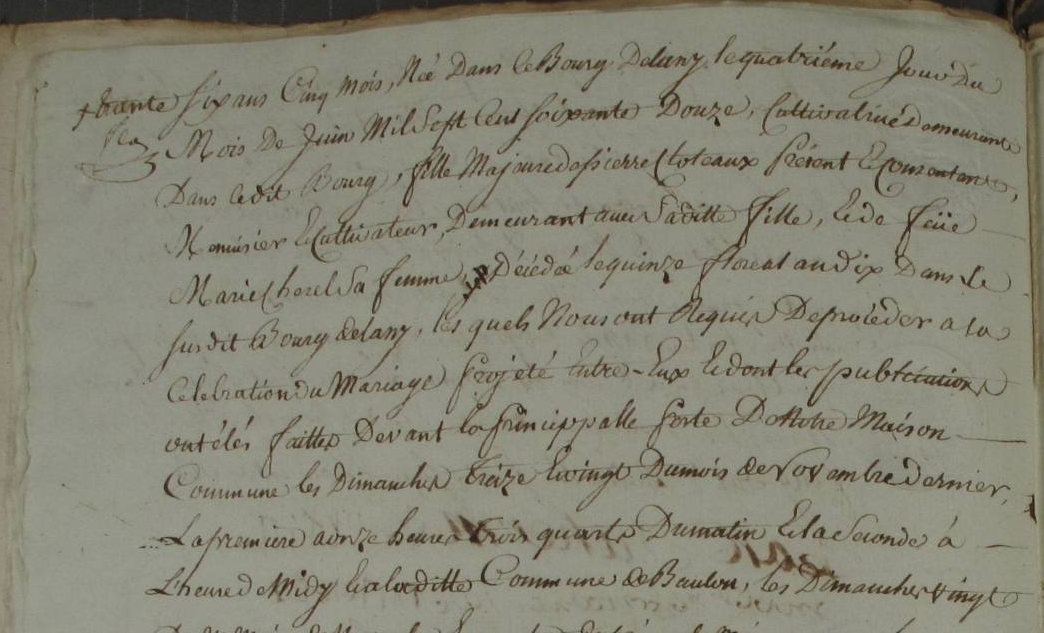 trante six ans Cinq mois, Née Dans le Bourg Delany le quatriéme Jour du
Mois De Juin Mil Sept Cent soixante Douze, Cultivatrice Demeurante
Dans le dit Bourg, fille Majeure de pierre Coteaux présent & Consentant,
Menuisier & Cultivateur, Demeurant avec Saditte fille, & de feüe
Marie Chorel Sa femme, Décédée le quinze floreal an dix Dans le
susdit Bourg de lany, les quels Nous ont Requis De procéder a la
Celebration du Mariage projété Entre-Eux & dont les publications
ont étés faittes Devant la princippalle porte De Notre Maison
Commune les Dimanches treize & vingt Du mois de Novambre dernier,
La premiere a onze heures trois quarts Du matin & la Seconde à
L'heure de Midy & a laditte Commune de Baulon, les Dimanches vingt